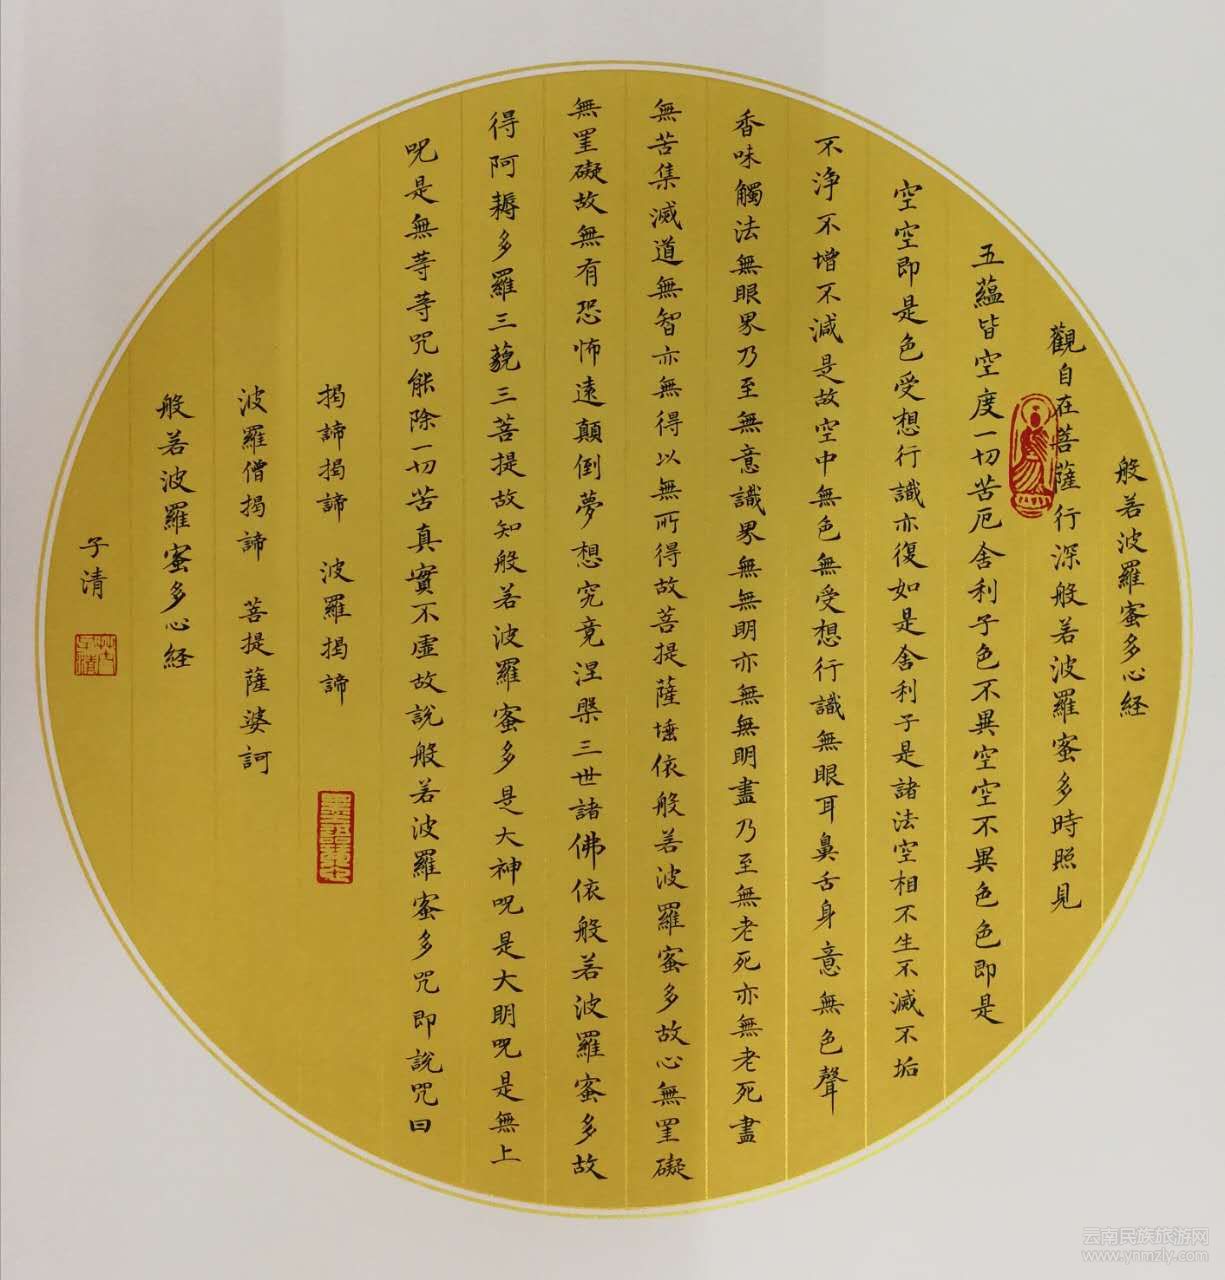 般若波羅蜜多心経
觀自在菩薩行深般若波羅蜜多時照見
五蘊皆空度一切苦厄舍利子色不異空空不異色色即是
空空即是色受想行識亦復如是舍利子是諸法空相不生不滅不垢
不浄不增不減是故空中無色無受想行識無眼耳鼻舌身意無色聲
香味觸法無眼界乃至無意識界無無明亦無無明盡乃至無老死亦無老死盡
無苦集滅道無智亦無得以無所得故菩提薩埵依般若波羅蜜多故心無罣礙
無罣礙故無有恐怖遠顛倒夢想究竟涅槃三世諸佛依般若波羅蜜多故
得阿耨多羅三藐三菩提故知般若波羅蜜多是大神呪是大明呪是無上
呪是無等等咒能除一切苦真實不虛故說般若波羅蜜多咒即說咒曰
揭諦揭諦 波羅揭諦
波羅僧揭諦 菩提薩婆訶
般若波羅蜜多心経
子清
云南民族旅游网
www.ynmzly.com